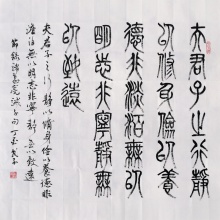 夫君子之行靜
以修身儉以養
德非淡泊無以
明志非寧靜無
以致遠
夫君子之行靜以修身儉以養德非
澹泊無以明志非寧靜無以致遠
節錄諸葛亮誡子句